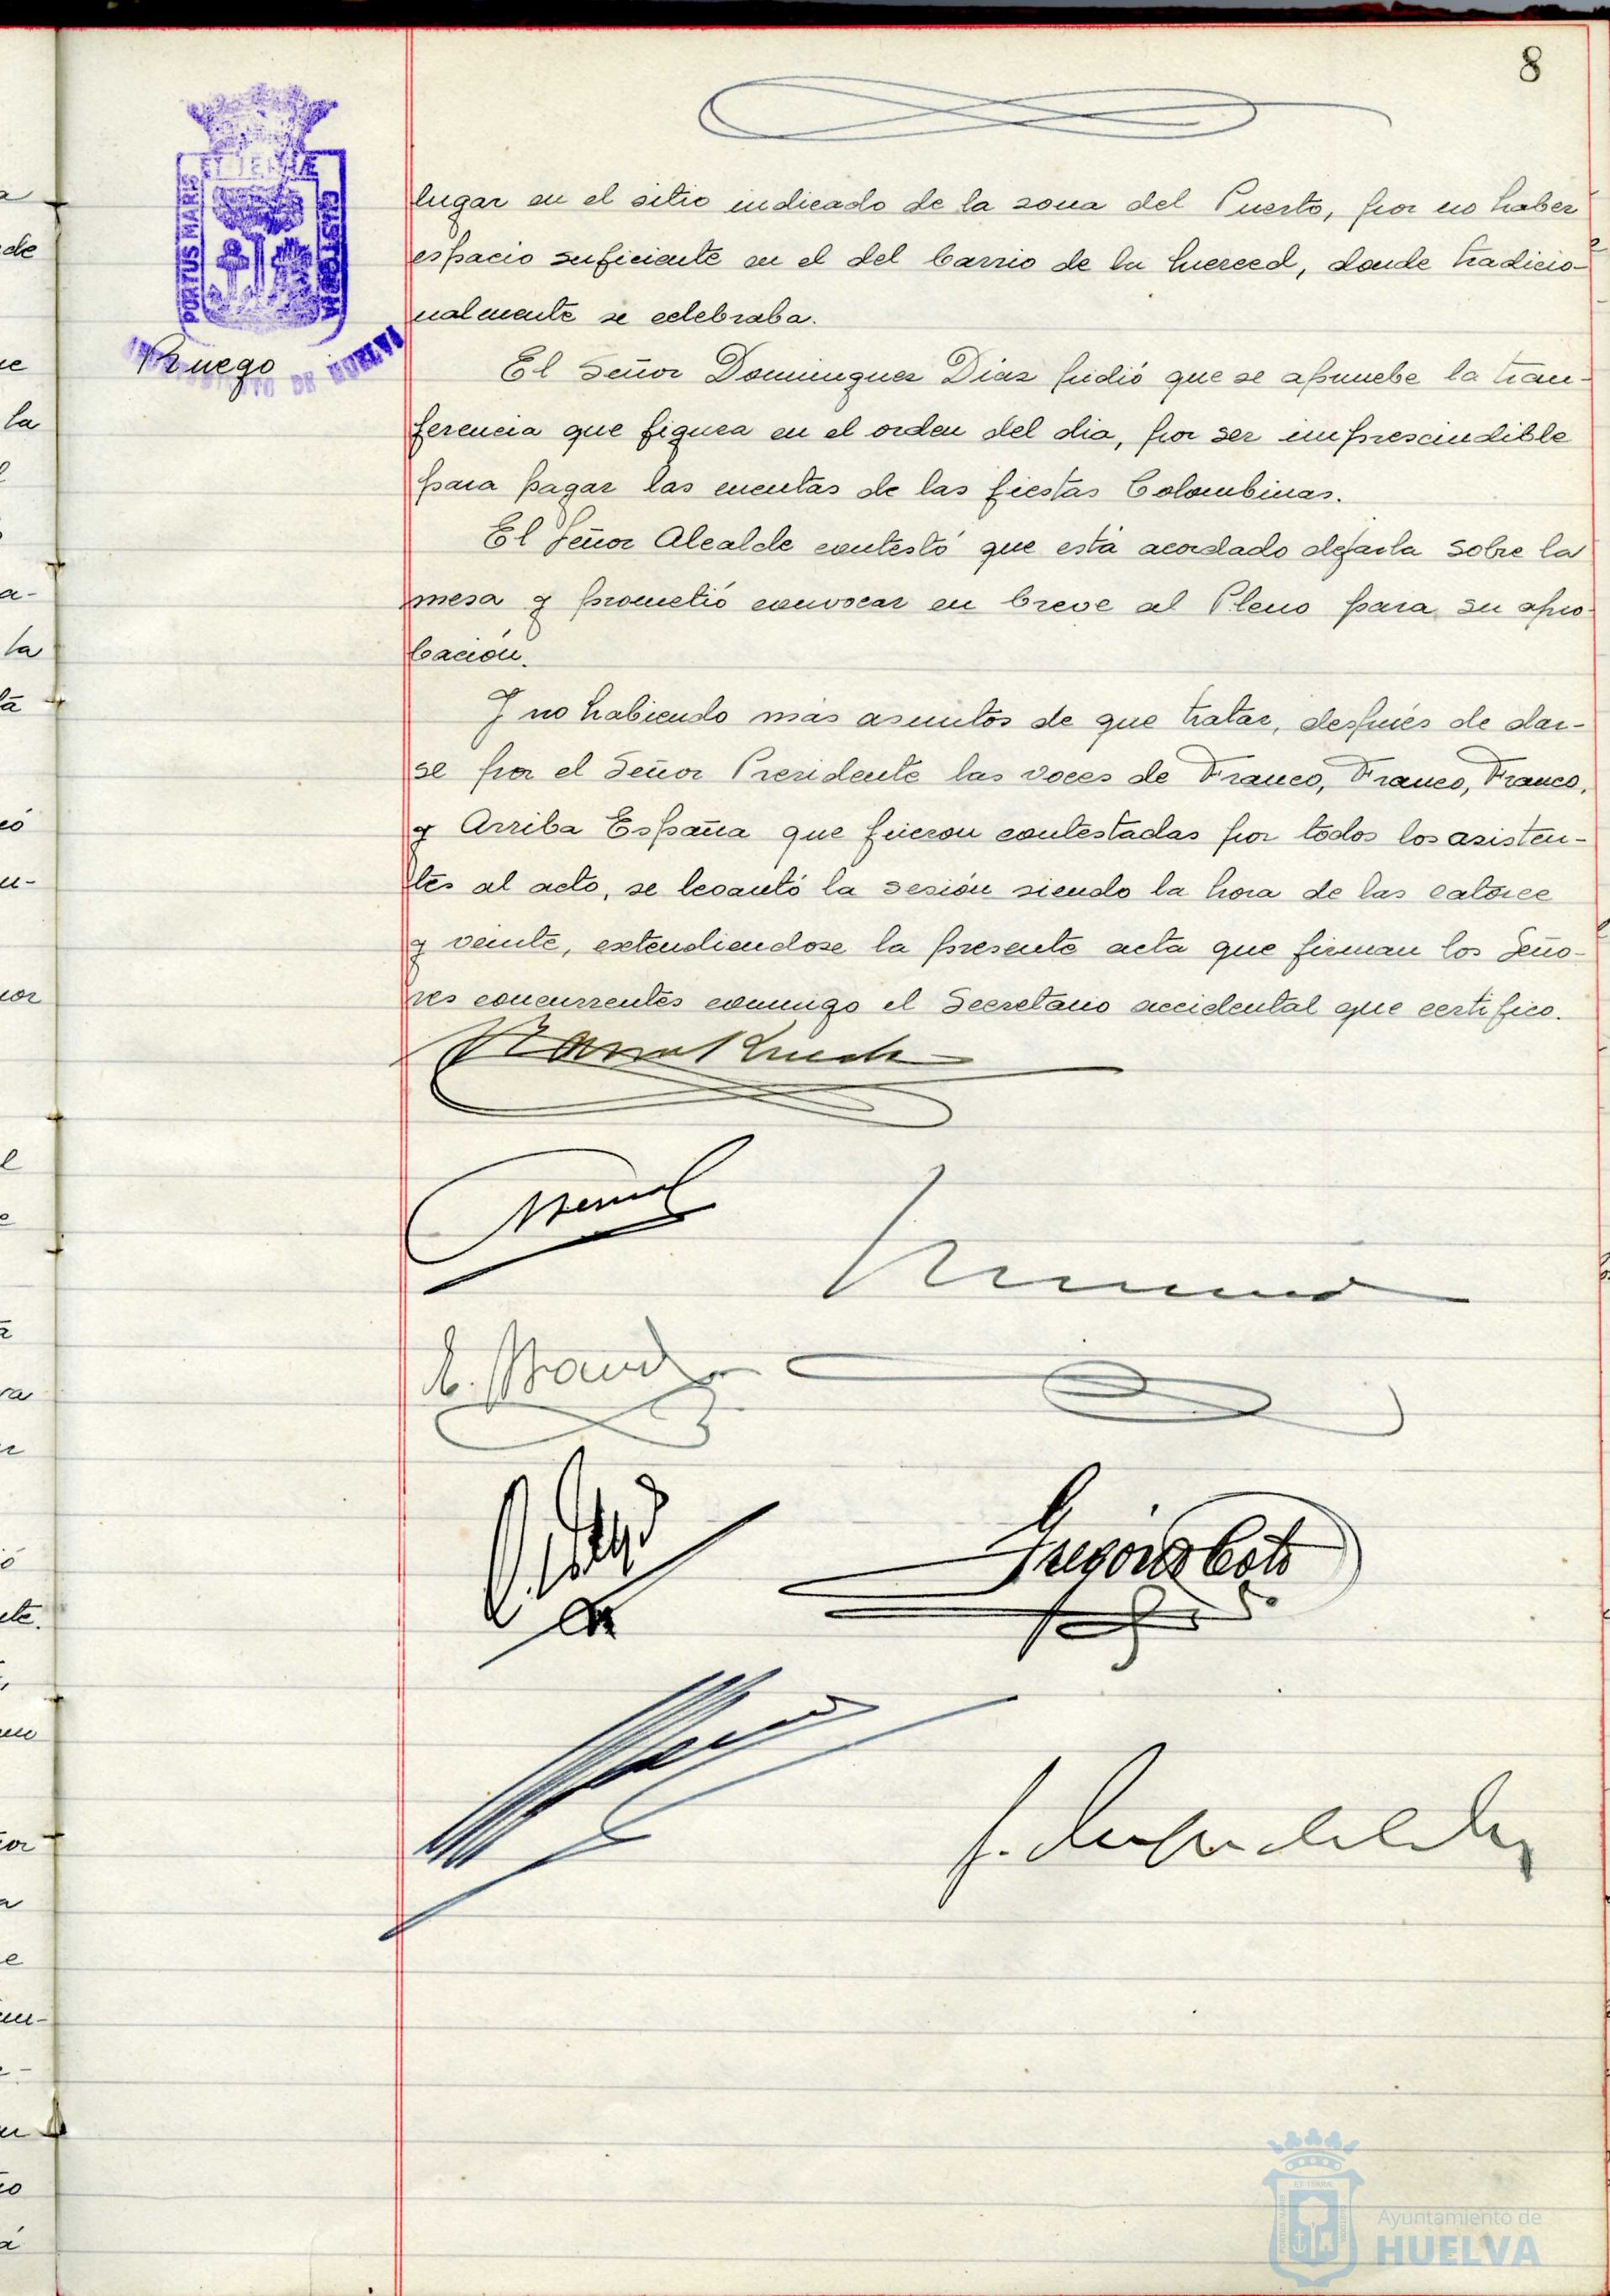 8
PORTUS MARIS
ET TERRÆ
CUSTODIA
AYUNTAMIENTO DE HUELVA
Ruego
lugar en el sitio indicado de la zona del Puerto, por no haber
espacio suficiente en el del barrio de la Merced, donde tradicio-
nalmente se celebraba.
El Señor Dominguez Diaz pidió que se apruebe la tran-
ferencia que figura en el orden del dia, por ser imprescindible
para pagar las cuentas de las fiestas Colombinas.
El Señor Alcalde contestó que está acordado dejarla sobre la
mesa y prometió convocar en breve al Pleno para su apro-
bación.
Y no habiendo más asuntos de que tratar, después de dar-
se por el Señor Presidente las voces de Franco, Franco, Franco,
y Arriba España que fueron contestadas por todos los asisten-
tes al acto, se levantó la sesión siendo la hora de las catorce
y veinte, extendiendose la presente acta que firman los Seño-
res concurrentes conmigo el Secretario accidental que certifico.
Gregorio Coto
Ayuntamiento de
HUELVA